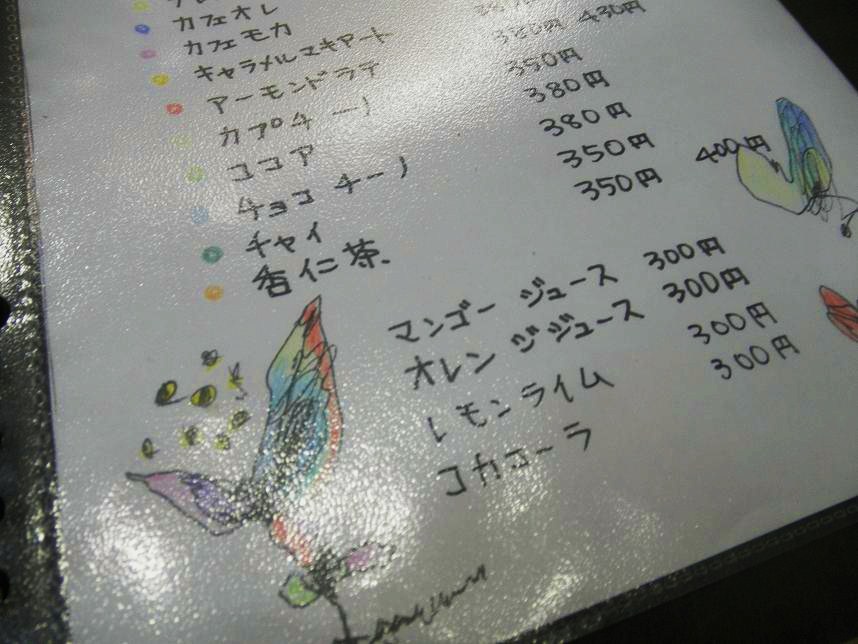 カフェオレ
カフェモカ
キャラメルマキアート
アーモンドラテ 380円 430円
カプチーノ 350円
ココア 380円
チョコチーノ 380円
チャイ 350円 400円
香仁茶 350円
マンゴージュース 300円
オレンジジュース 300円
レモンライム 300円
コカコーラ 300円